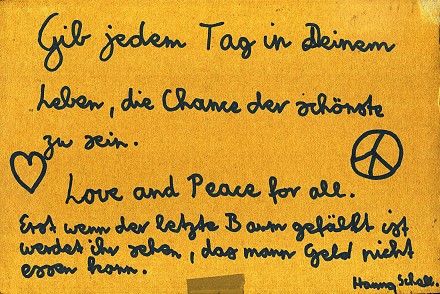 Gib jedem Tag in Deinem
Leben, die Chance der schönste
zu sein.
Love and Peace for all.
Erst wenn der letzte Baum gefällt ist
werdet ihr sehen, das mann Geld nicht
essen kann.
Hanna Schall.